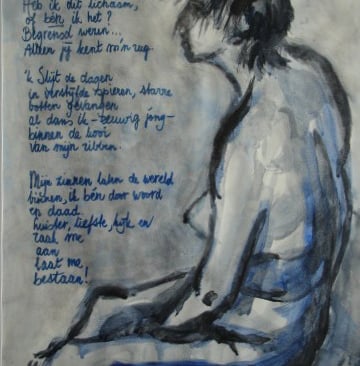 Heb ik dit lichaam,
of bén ik het?
Begrensd weren...
Alleen jij kent m'n rug.
'k Slijt de dagen
in verstijfde spieren, starre
botten gevangen
al dans ik - eeuwig jong -
binnen de kooi
van mijn ribben.
Mijn zinnen laten de wereld
binnen, ik ben door woord
en daad
huister, liefste, kijk en
raak me
aan
laat me
bestaan!